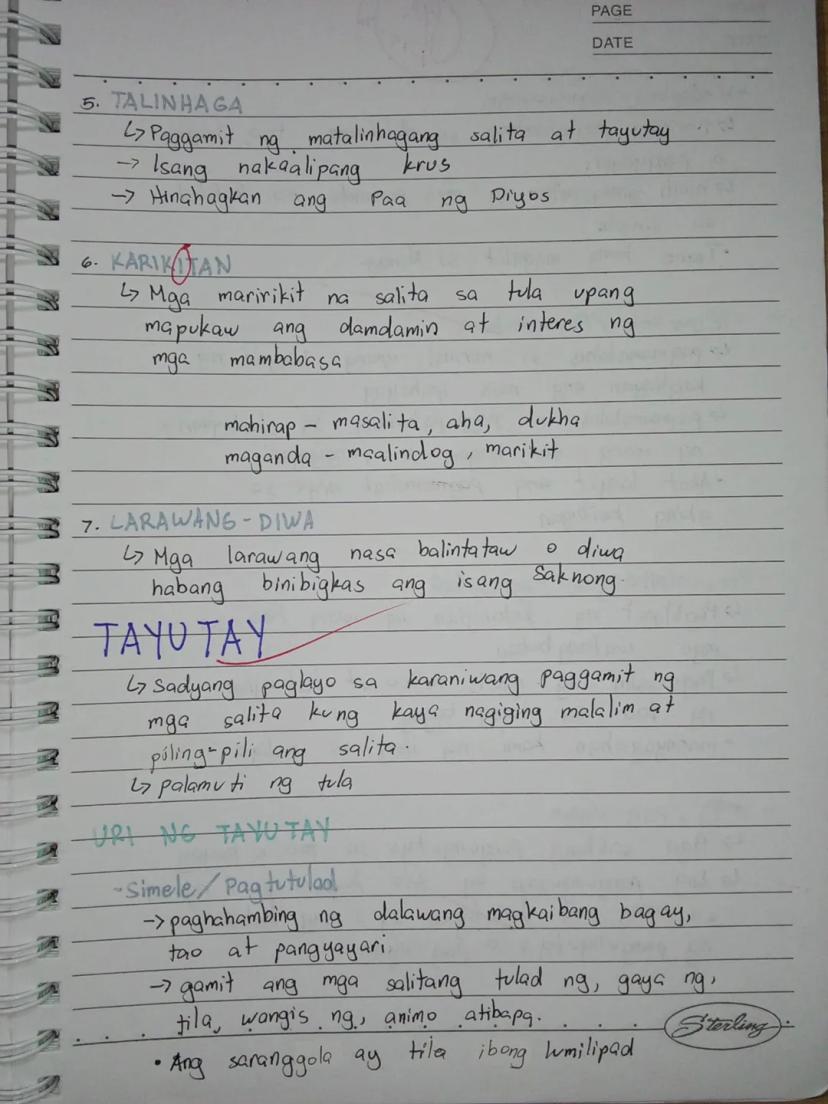 PAGE
DATE
5. TALINHAGA
↳ Paggamit ng matalinhagang salita at tayutay
→ Isang nakaalipang krus
→ Hinahagkan ang Paa ng Diyos
6. KARIKITAN
↳ Mga maririkit na salita sa tula upang
mapukaw ang damdamin at interes ng
mga mambabasa
mahirap - masalita, aha, dukha
maganda - maalindog, marikit
7. LARAWANG-DIWA
↳ Mga larawang nasa balintataw o diwa
habang binibigkas ang isang Saknong.
TAYUTAY
↳ Sadyang paglayo sa karaniwang paggamit ng
mga salita kung kaya nagiging malalim at
piling-pili ang salita.
↳ palamuti ng tula
URI NG TAYUTAY
- Simele/Pagtutulad
→ paghahambing ng dalawang magkaibang bagay,
tao at pangyayari
→ gamit ang mga salitang tulad ng, gaya ng,
tila, wangis ng, animo atibapa.
Sterling
• Ang saranggola ay tila ibong lumilipad